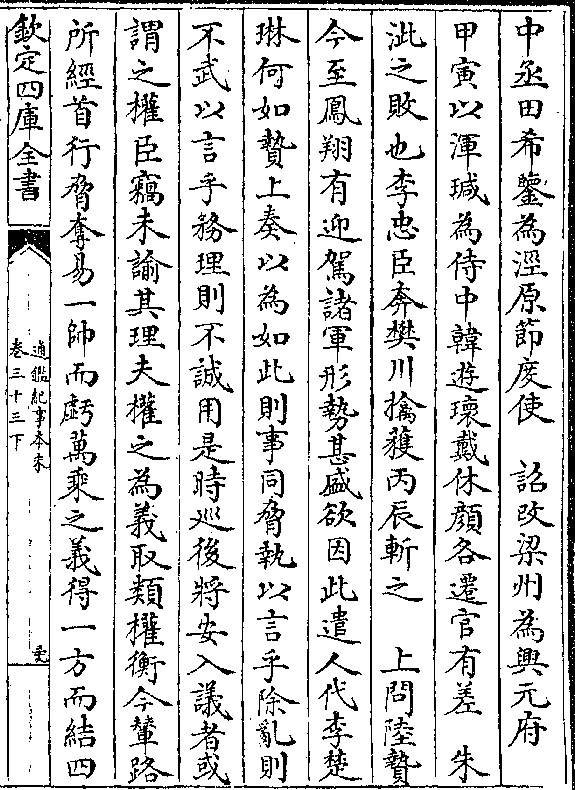 中丞田希鑒為涇原節度使　詔改梁州為興元府
甲寅以渾瑊為侍中韓遊瓌戴休顔各遷官有差　朱
泚之敗也李忠臣奔樊川擒獲丙辰斬之　上問陸贄
今至鳳翔有迎駕諸軍形勢甚盛欲因此遣人代李楚
琳何如贄上奏以為如此則事同脅執以言乎除亂則
不武以言乎務理則不誠用是時巡後將安入議者或
謂之權臣竊未諭其理夫權之為義取類權衡今輦路
所經首行脅奪易一帥而虧萬乘之義得一方而結四
欽定四庫全書
通鑑紀事本末
卷三十三下